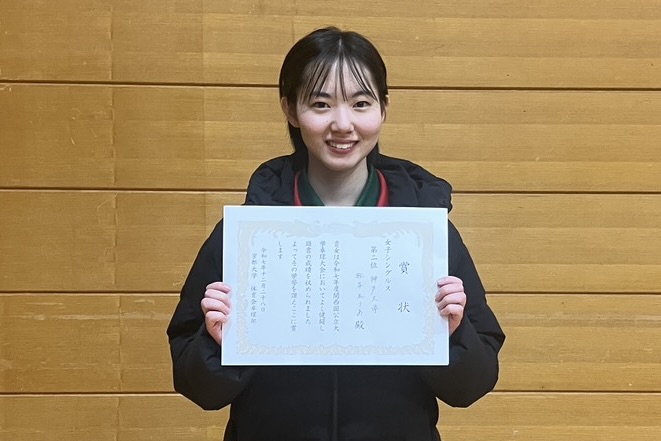 賞状
女子シングルス
第二位 神戸大学
殿
貴女は令和七年度関西国公立大
学卓球大会においてよく健闘し
頭書の成績を収められました
よってその栄誉を讃えここに賞
します
令和七年十二月二十八日
京都大学 体育会卓球部